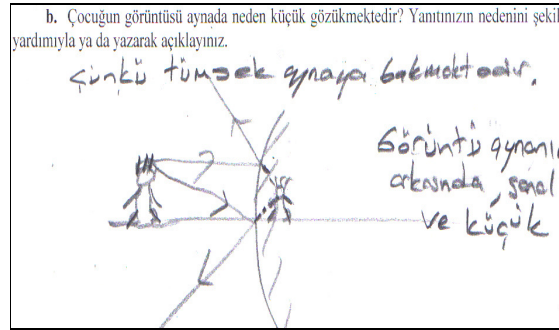 b. Çocuğun görüntüsü aynada neden küçük gözükmektedir? Yanıtınızın nedenini şekil
yardımıyla ya da yazarak açıklayınız.
Çünkü tümsek aynaya bakmaktadır.
Görüntü aynanı
arkasında, sanal
ve küçük